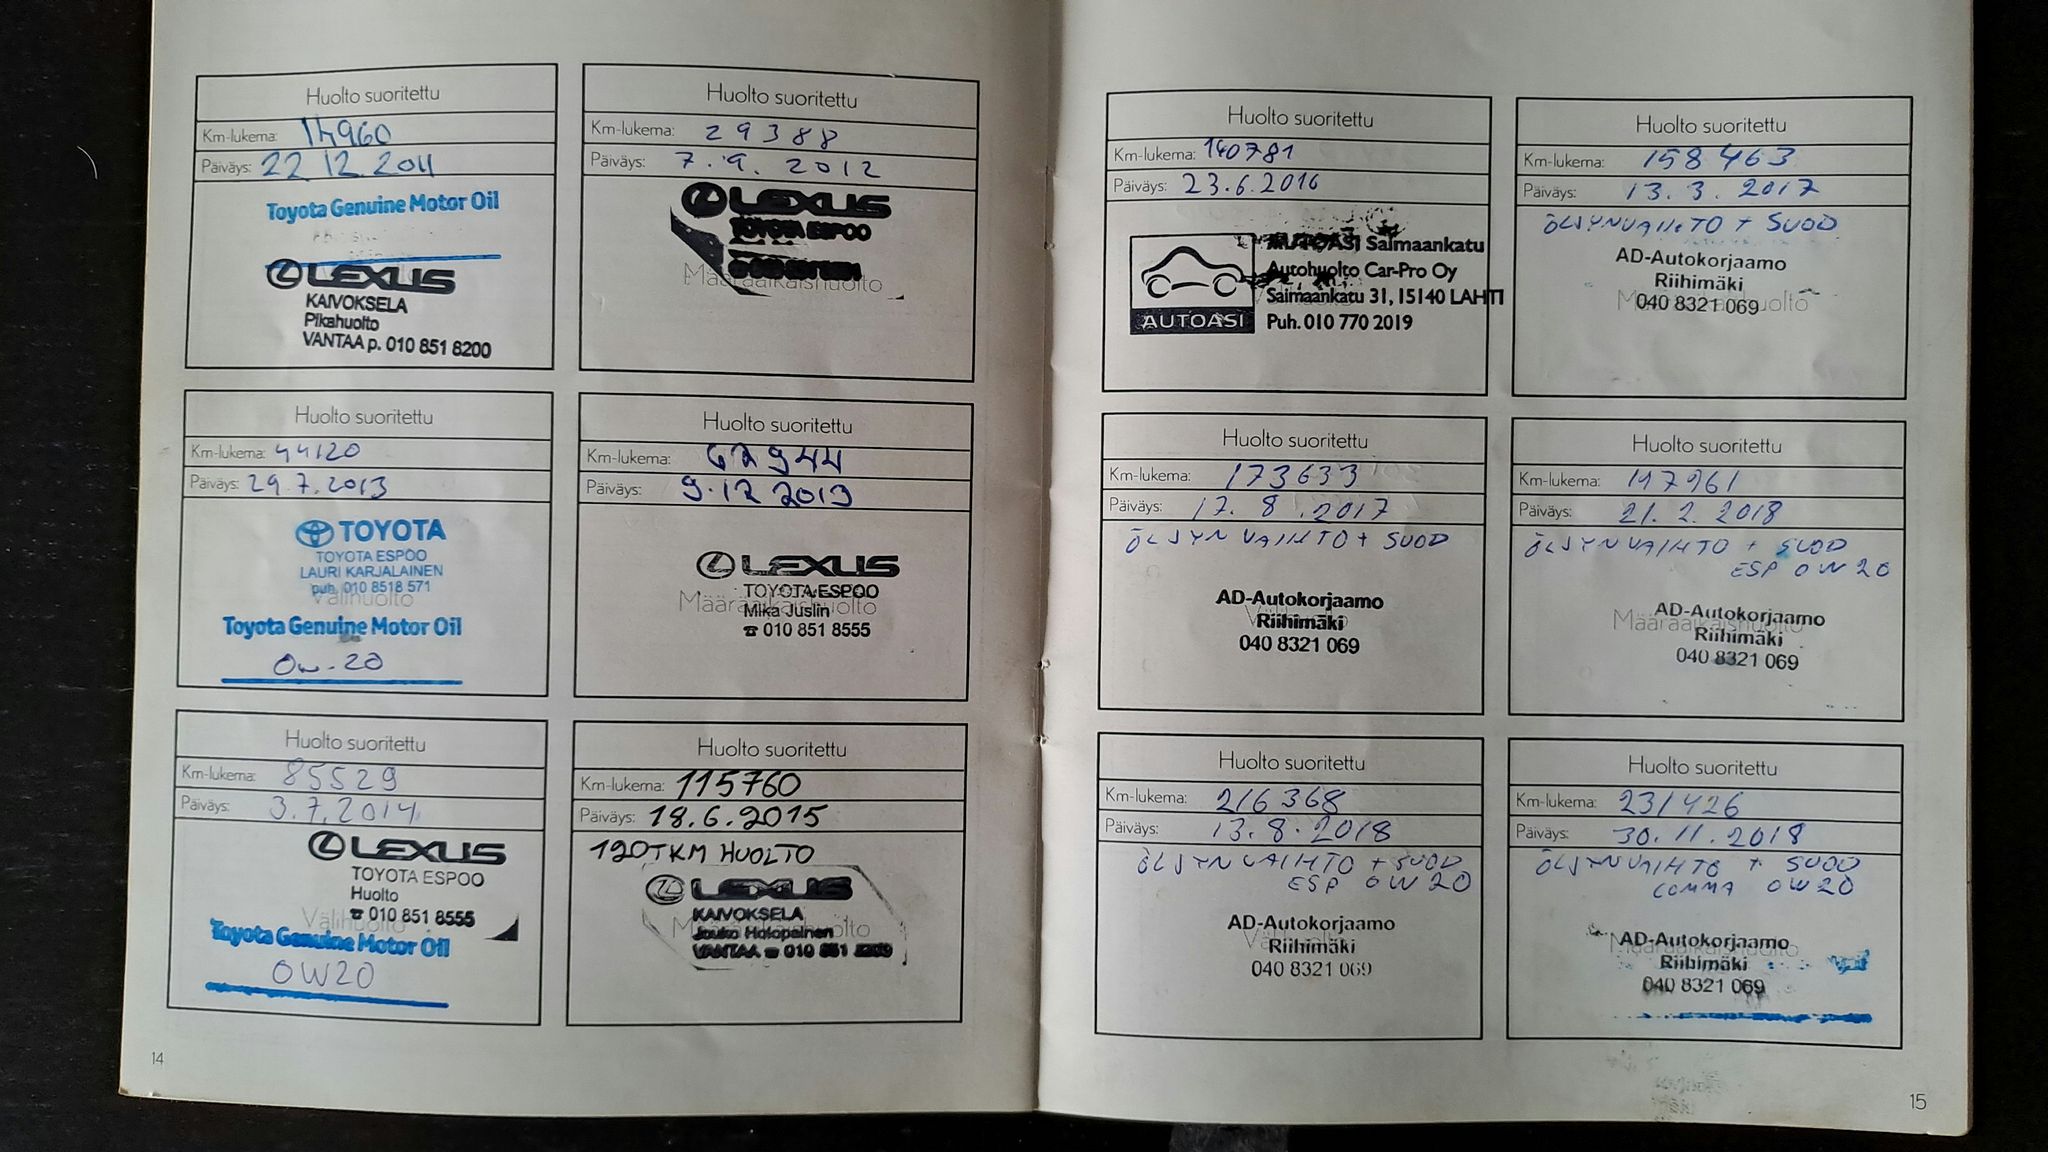 Huolto suoritettu
Km-lukema: 14960
Päiväys: 22.12.2011
Toyota Genuine Motor Oil
LEXUS
KAIVOKSELA
Pikahuolto
VANTAA p. 010 851 8200
Huolto suoritettu
Km-lukema: 29388
Päiväys: 7.9.2012
LEXUS
TOYOTA ESPOO
Määräaikaishuolto
Huolto suoritettu
Km-lukema: 44120
Päiväys: 29.7.2013
TOYOTA
TOYOTA ESPOO
LAURI KARJALAINEN
puh. 010 8518 571
Välihuolto
Toyota Genuine Motor Oil
0w-20
Huolto suoritettu
Km-lukema:
Päiväys: 9.12 2013
LEXUS
TOYOTA ESPOO
Määräaikaishuolto
Mika Juslin
☎ 010 851 8555
Huolto suoritettu
Km-lukema: 85529
Päiväys: 3.7.2014
LEXUS
TOYOTA ESPOO
Huolto
☎ 010 851 8555
Välihuolto
Toyota Genuine Motor Oil
0W20
Huolto suoritettu
Km-lukema: 115760
Päiväys: 18.6.2015
120TKM HUOLTO
LEXUS
KAIVOKSELA
Jouko Holopainen
VANTAA ☎ 010 851
14
Huolto suoritettu
Km-lukema: 140781
Päiväys: 23.6.2016
AUTOASI Saimaankatu
Autohuolto Car-Pro Oy
Saimaankatu 31, 15140 LAHTI
Puh. 010 770 2019
AUTOASI
Huolto suoritettu
Km-lukema: 158463
Päiväys: 13.3.2017
ÖLJYNVAIHTO + SUOD
AD-Autokorjaamo
Riihimäki
Määräaikaishuolto
040 8321 069
Huolto suoritettu
Km-lukema: 173633
Päiväys: 17.8.2017
ÖLJYNVAIHTO + SUOD
AD-Autokorjaamo
Riihimäki
040 8321 069
Huolto suoritettu
Km-lukema: 197961
Päiväys: 21.2.2018
ÖLJYNVAIHTO + SUOD
ESP 0W20
AD-Autokorjaamo
Määräaikaishuolto
Riihimäki
040 8321 069
Huolto suoritettu
Km-lukema: 216368
Päiväys: 13.8.2018
ÖLJYNVAIHTO + SUOD
ESP 0W20
AD-Autokorjaamo
Välihuolto
Riihimäki
040 8321 069
Huolto suoritettu
Km-lukema: 231426
Päiväys: 30.11.2018
ÖLJYNVAIHTO + SUOD
COMMA 0W20
AD-Autokorjaamo
Määräaikaishuolto
Riihimäki
040 8321 069
15